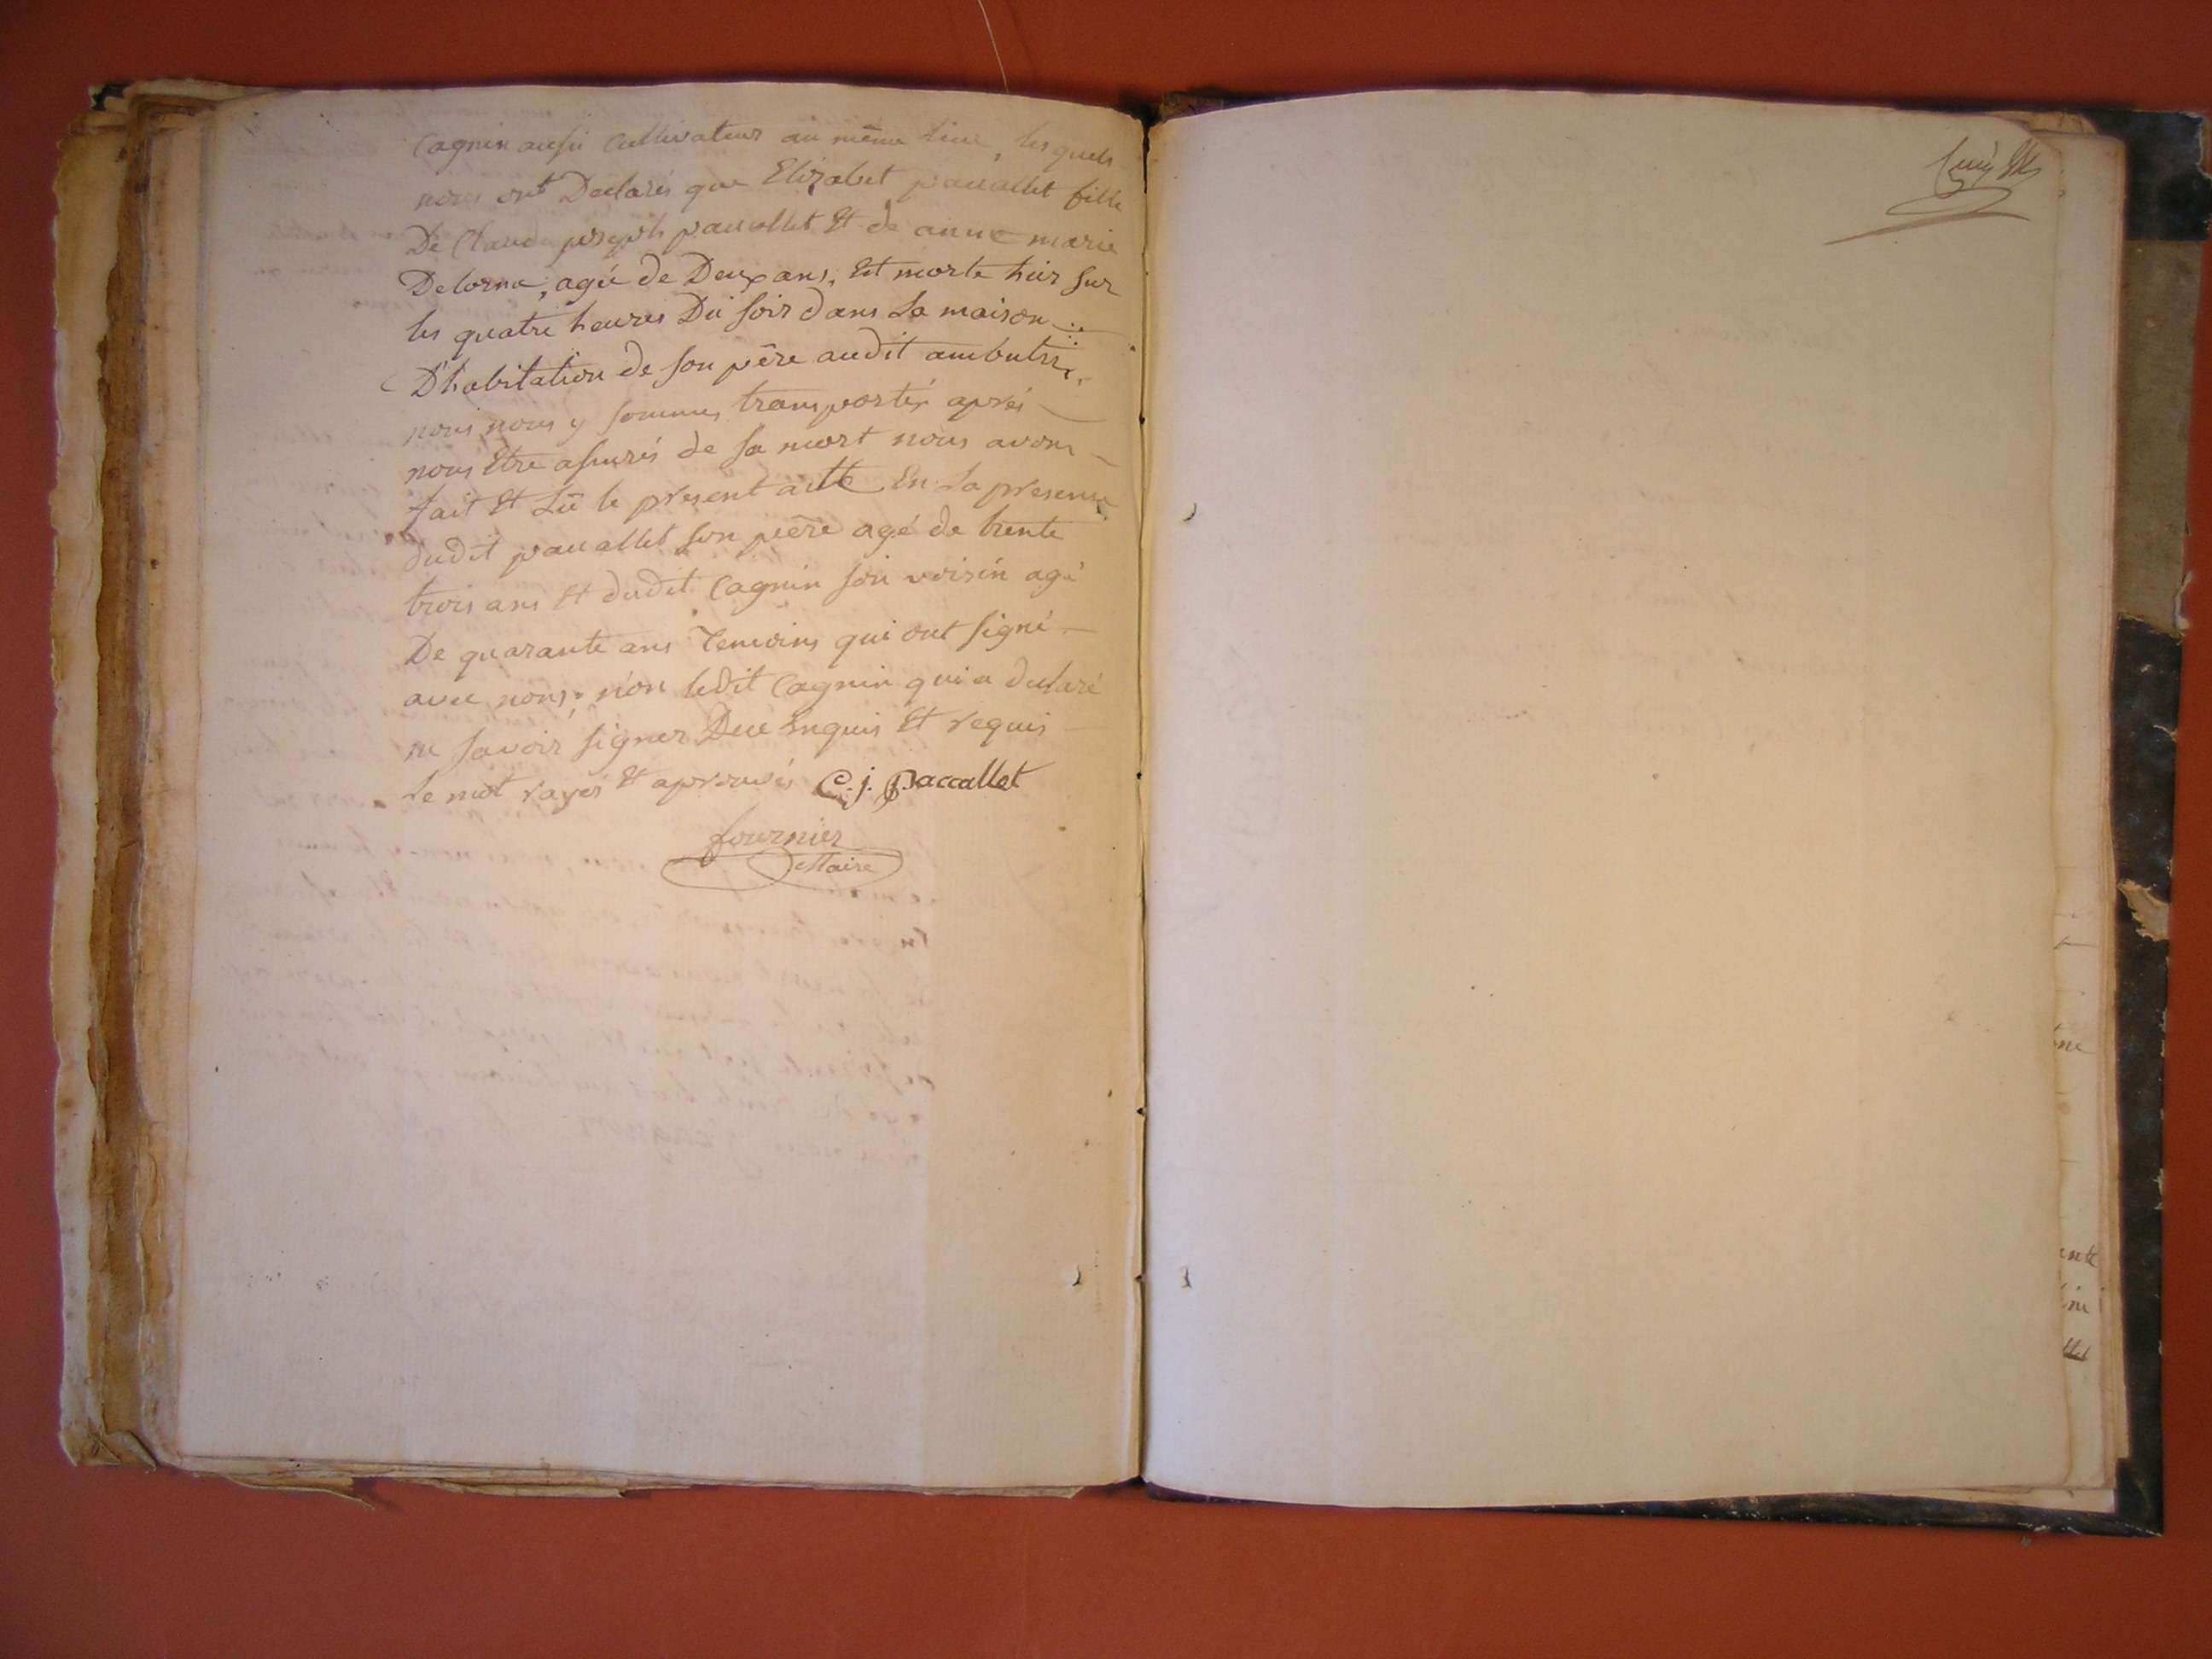 Cagnin aussi Cultivateur au même lieu, lesquels
nous ont Declarés que Elizabet paccallet fille
De Claude joseph paccallet Et de anne marie
Delorme, agée de Deux ans, Est morte hier sur
les quatre heures Du soir dans La maison
D'habitation de son père audit ambutrix,
nous nous y sommes transportés après
nous Etre assurés de sa mort nous avons
fait Et Lû le present actte En La presence
dudit paccallet son père agé de trente
trois ans Et dudit Cagnin son voisin agé
De quarante ans Temoins qui ont signé
avec nous; non ledit Cagnin qui a declaré
ne savoir signer De ce Enquis Et requis
Le mot rayés Et aprouvés C. j. Paccallet
fournier
Maire